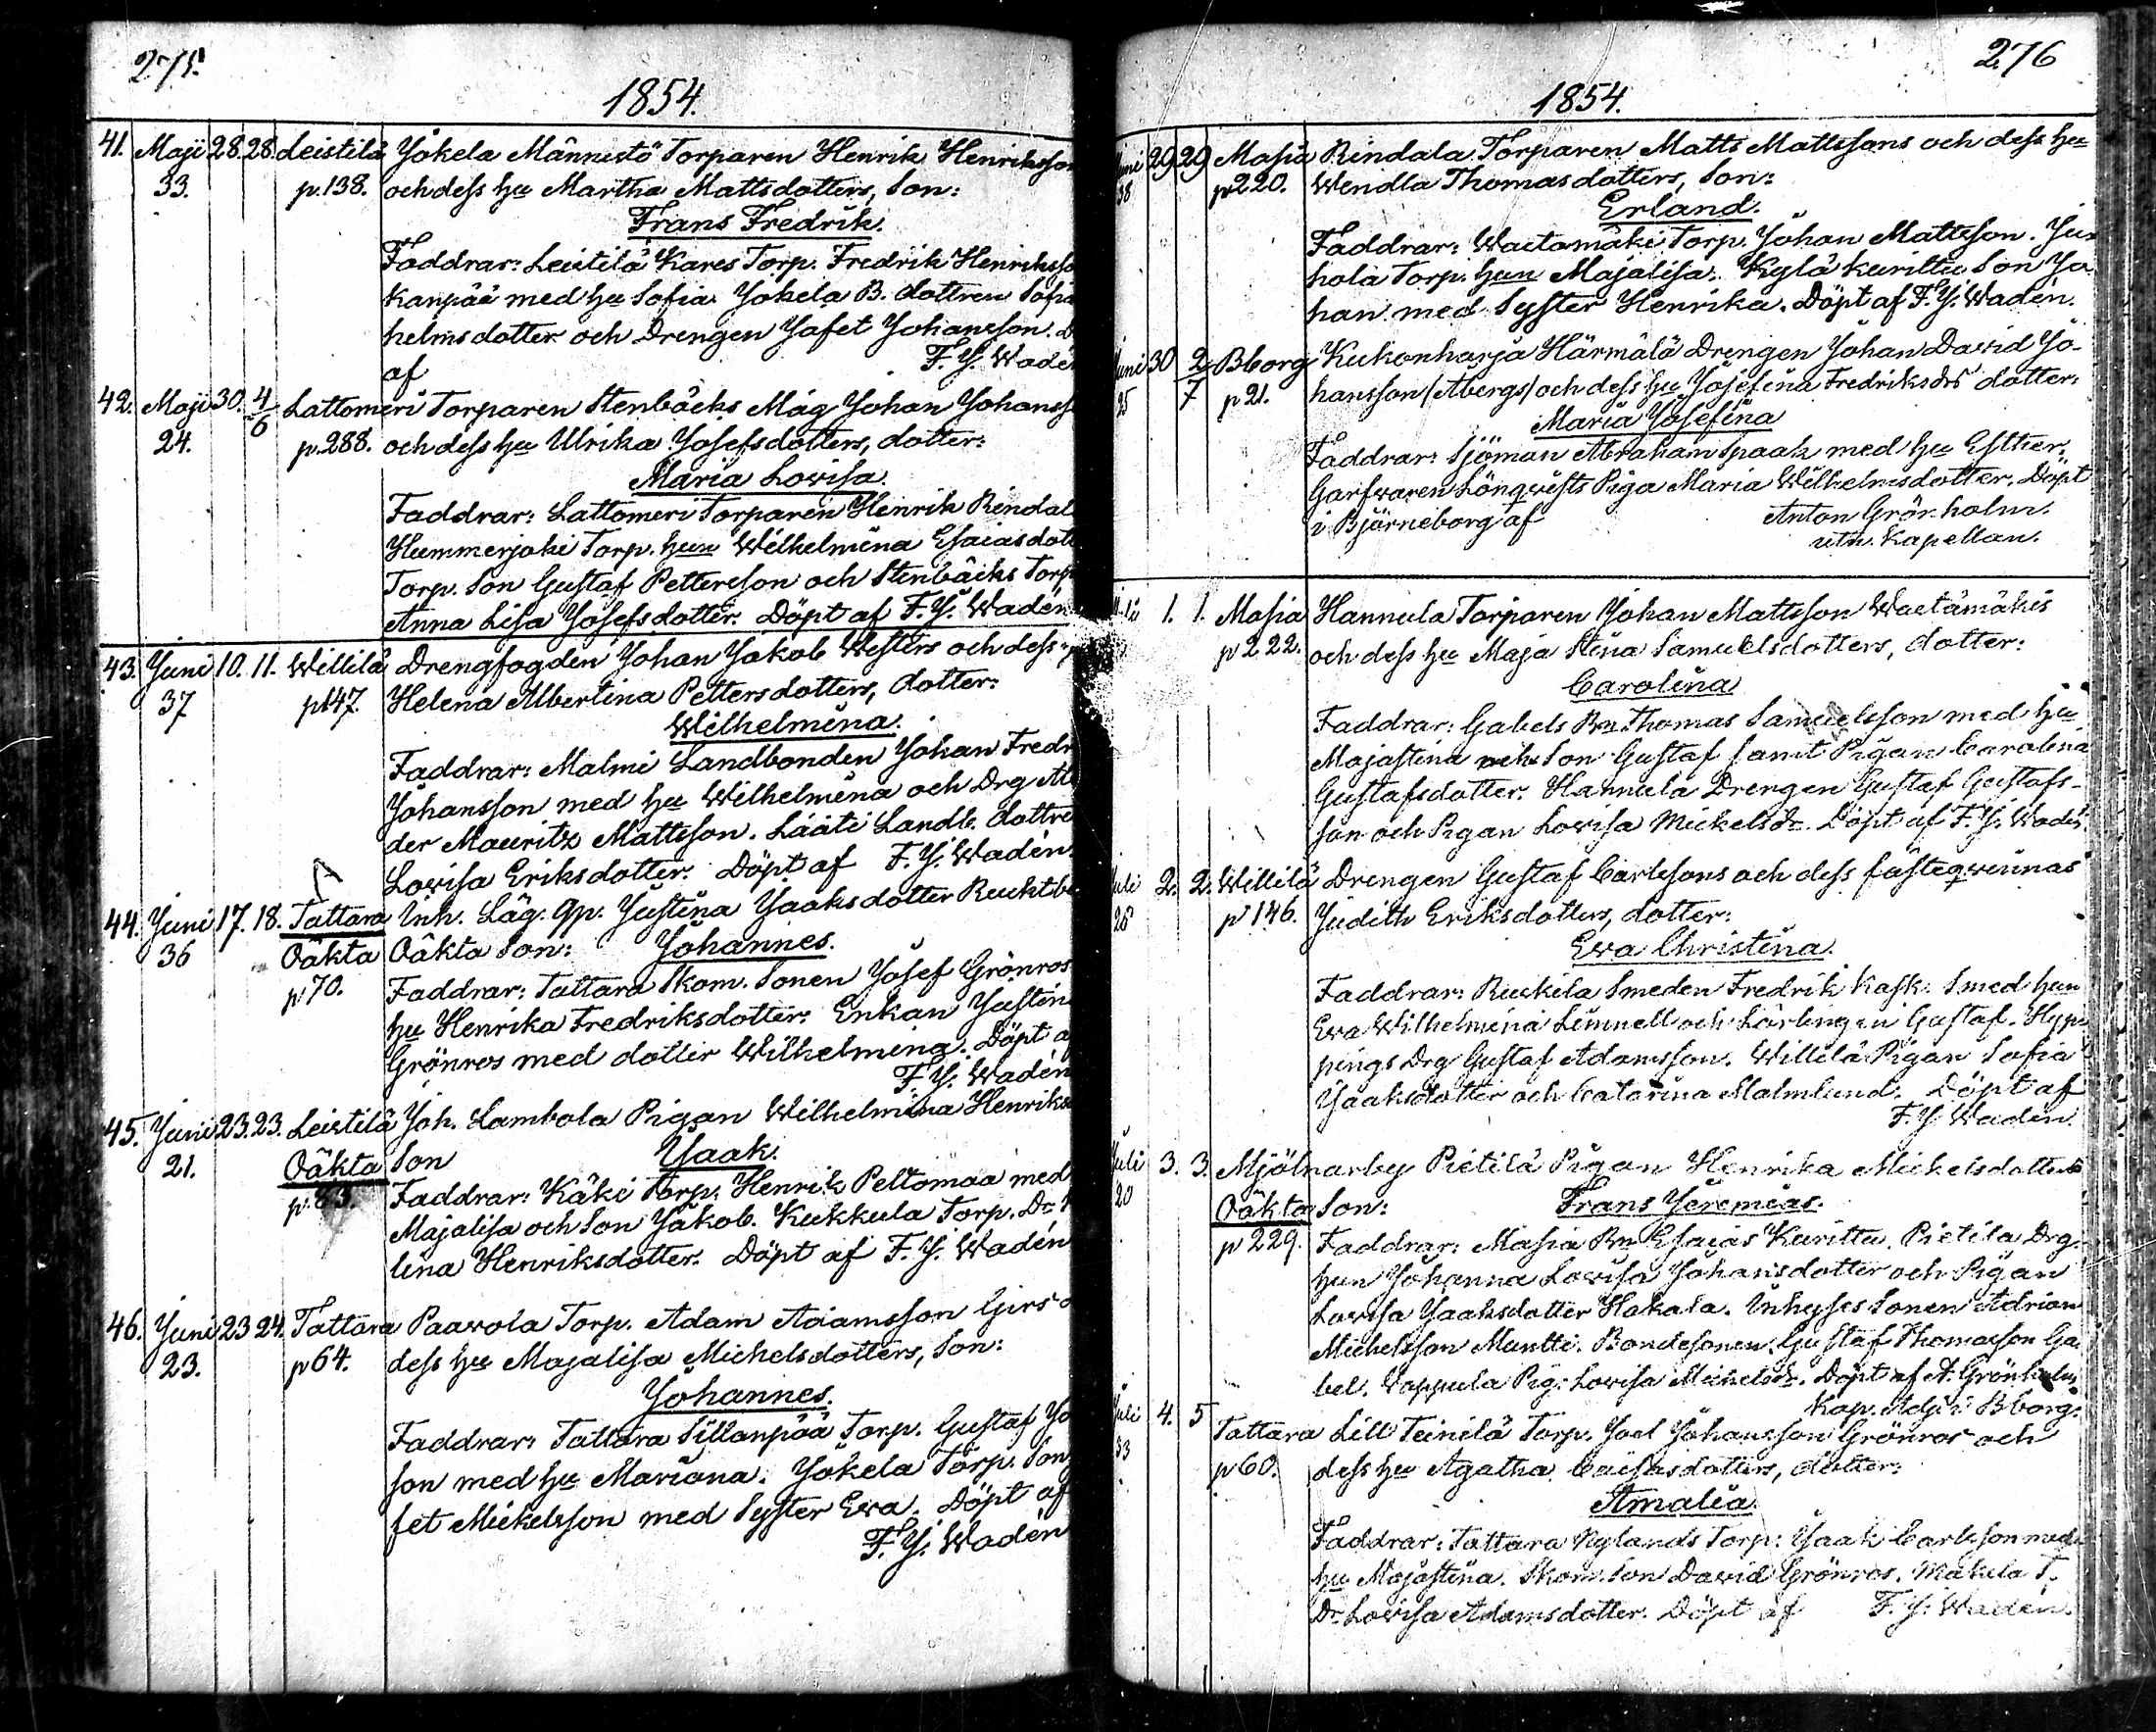 275.
1854.
41. Maji 28. 28. Leistilä Jokela Männistö Torparen Henrik Henriksson
33. p. 138. och dess hu Martha Mattsdotters, Son:
Frans Fredrik.
Faddrar: Leistilä Kares Torp. Fredrik Henriksso
kanpää med hu Sofia. Jokela B. dottren Sofia
helmsdotter och Drengen Jafet Johansson. D
af F. J. Wadén
42. Maji 30. 4/6 Lattomeri Torparen Stenbäcks Måg Johan Johanss
24. p. 288. och dess hu Ulrika Josefsdotters, dotter:
Maria Lovisa.
Faddrar: Lattomeri Torparen Henrik Rindal
Hummerjoki Torp. hun Wilhelmina Esaiasdot
Torp. Son Gustaf Pettersson och Stenbäcks Torp
Anna Lisa Josefsdotter. Döpt af F. J. Wadén
43. Juni 10. 11. Willilä Drengfogden Johan Jakob Westers och dess
37 p147. Helena Albertina Pettersdotters, dotter:
Wilhelmina.
Faddrar: Malmi Landbonden Johan Fredr
Johansson med hu Wilhelmina och Drg Al
der Mauritz Mattsson. Lääti Landb. dottre
Lovisa Eriksdotter. Döpt af F. J. Wadén.
44. Juni 17. 18. Tattara Inh. Läg. qp. Justina Jaaksdotter
36 Oäkta Oäkta Son: Johannes.
p 70. Faddrar: Tattara Skom. Sonen Josef Grönros
hu Henrika Fredriksdotter. Enkan Justin
Grönros med dotter Wilhelmina. Döpt a
F. J. Wadén
45. Juni 23. 23. Leistilä Joh. Lambola Pigan Wilhelmina Henriks
21. Oäkta Son Jaak.
p. 83. Faddrar: Käki Torp. Henrik Peltomaa med
Majalisa och Son Jakob. Kukkula Torp. Dr
lina Henriksdotter. Döpt af F. J. Wadén
46. Juni 23 24. Tattara Paavola Torp. Adam Adamsson Girs o
23. p 64. dess hu Majalisa Michelsdotters, Son:
Johannes.
Faddrar: Tattara Sillanpää Torp. Gustaf Jo
son med hu Mariana. Jokela Torp. Son
fet Mickelsson med Syster Eva. Döpt af
F. J. Wadén
276
1854.
Juni 29 29 Masia Rindala Torparen Matts Mattssons och dess hu
38 p220. Wendla Thomasdotters, Son:
Erland.
Faddrar: Waetamäki Torp. Johan Mattsson. Ju
hola Torp. hun Majalisa. Kylä kurittu Son Jo
han med Syster Henrika. Döpt af F. J. Wadén.
Juni 30 2/7 Bborg Kukonharja Härmälä Drengen Johan David Jo-
25 p 21. hansson (Åbergs) och dess hu Josefina Fredriksdrs dotter:
Maria Josefina
Faddrar: Sjöman Abraham Spaak med hu Esther.
Garfvaren Lönqvists Piga Maria Wilhelmsdotter. Döpt
i Björneborg af Anton Grönholm.
utn. Kapellan.
1. 1. Masia Hannula Torparen Johan Mattsson Waetämäkis
p 222. och dess hu Maja Stina Samuelsdotters, dotter:
Carolina
Faddrar: Gabels Bn Thomas Samuelsson med hu
Majastina och Son Gustaf samt Pigan Carolina
Gustafsdotter. Hannula Drengen Gustaf Gustafs-
son och Pigan Lovisa Mickelsdr. Döpt af F. J. Wadén.
Juli 2. 2. Willilä Drengen Gustaf Carlssons och dess fästeqvinnas
28 p 146. Judith Eriksdotters, dotter:
Eva Christina.
Faddrar: Ruskila Smeden Fredrik Kask. Smed hun
Eva Wilhelmina Linnell och Lärlingen Gustaf. Hyp
pings Drg Gustaf Adamsson. Willilä Pigan Sofia
Jaaksdotter och Catarina Malmlund. Döpt af
F. J. Wadén.
Juli 3. 3. Mjölnarby Pietilä Pigan Henrika Mickelsdotters
20 Oäkta Son: Frans Jeremias.
p 229. Faddrar: Masia Bn Esaias Kurittu. Pietilä Drg.
hun Johanna Lovisa Johansdotter och Pigan
Lovisa Jaaksdotter Hakala. Inhyses Sonen Adrian
Michelsson Muntti. Bondesonen Gustaf Thomasson Ga
bel. Vappula Pig. Lovisa Michelsdr. Döpt af A. Grönholm
Kap. Adj. i Bborg.
Juli 4. 5 Tattara Lill Teinilä Torp. Joel Johansson Grönros och
33 p 60. dess hu Agatha Caisasdotters, dotter:
Amalia.
Faddrar: Tattara Nylands Torp: Jaak Carlsson med
hu Majastina. Skom. Son David Grönros. Mäkela T.
Dr. Lovisa Adamsdotter. Döpt af F. J. Wadén.